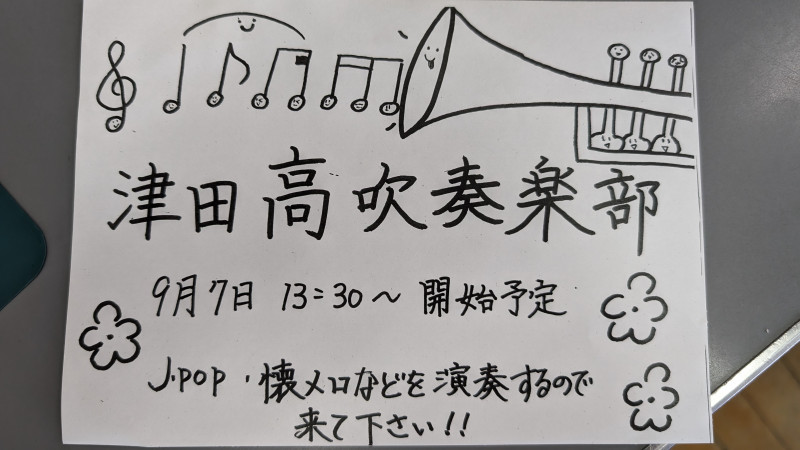 津田高吹奏楽部
9月7日 13:30〜 開始予定
J.pop・懐メロなどを演奏するので
来て下さい!!